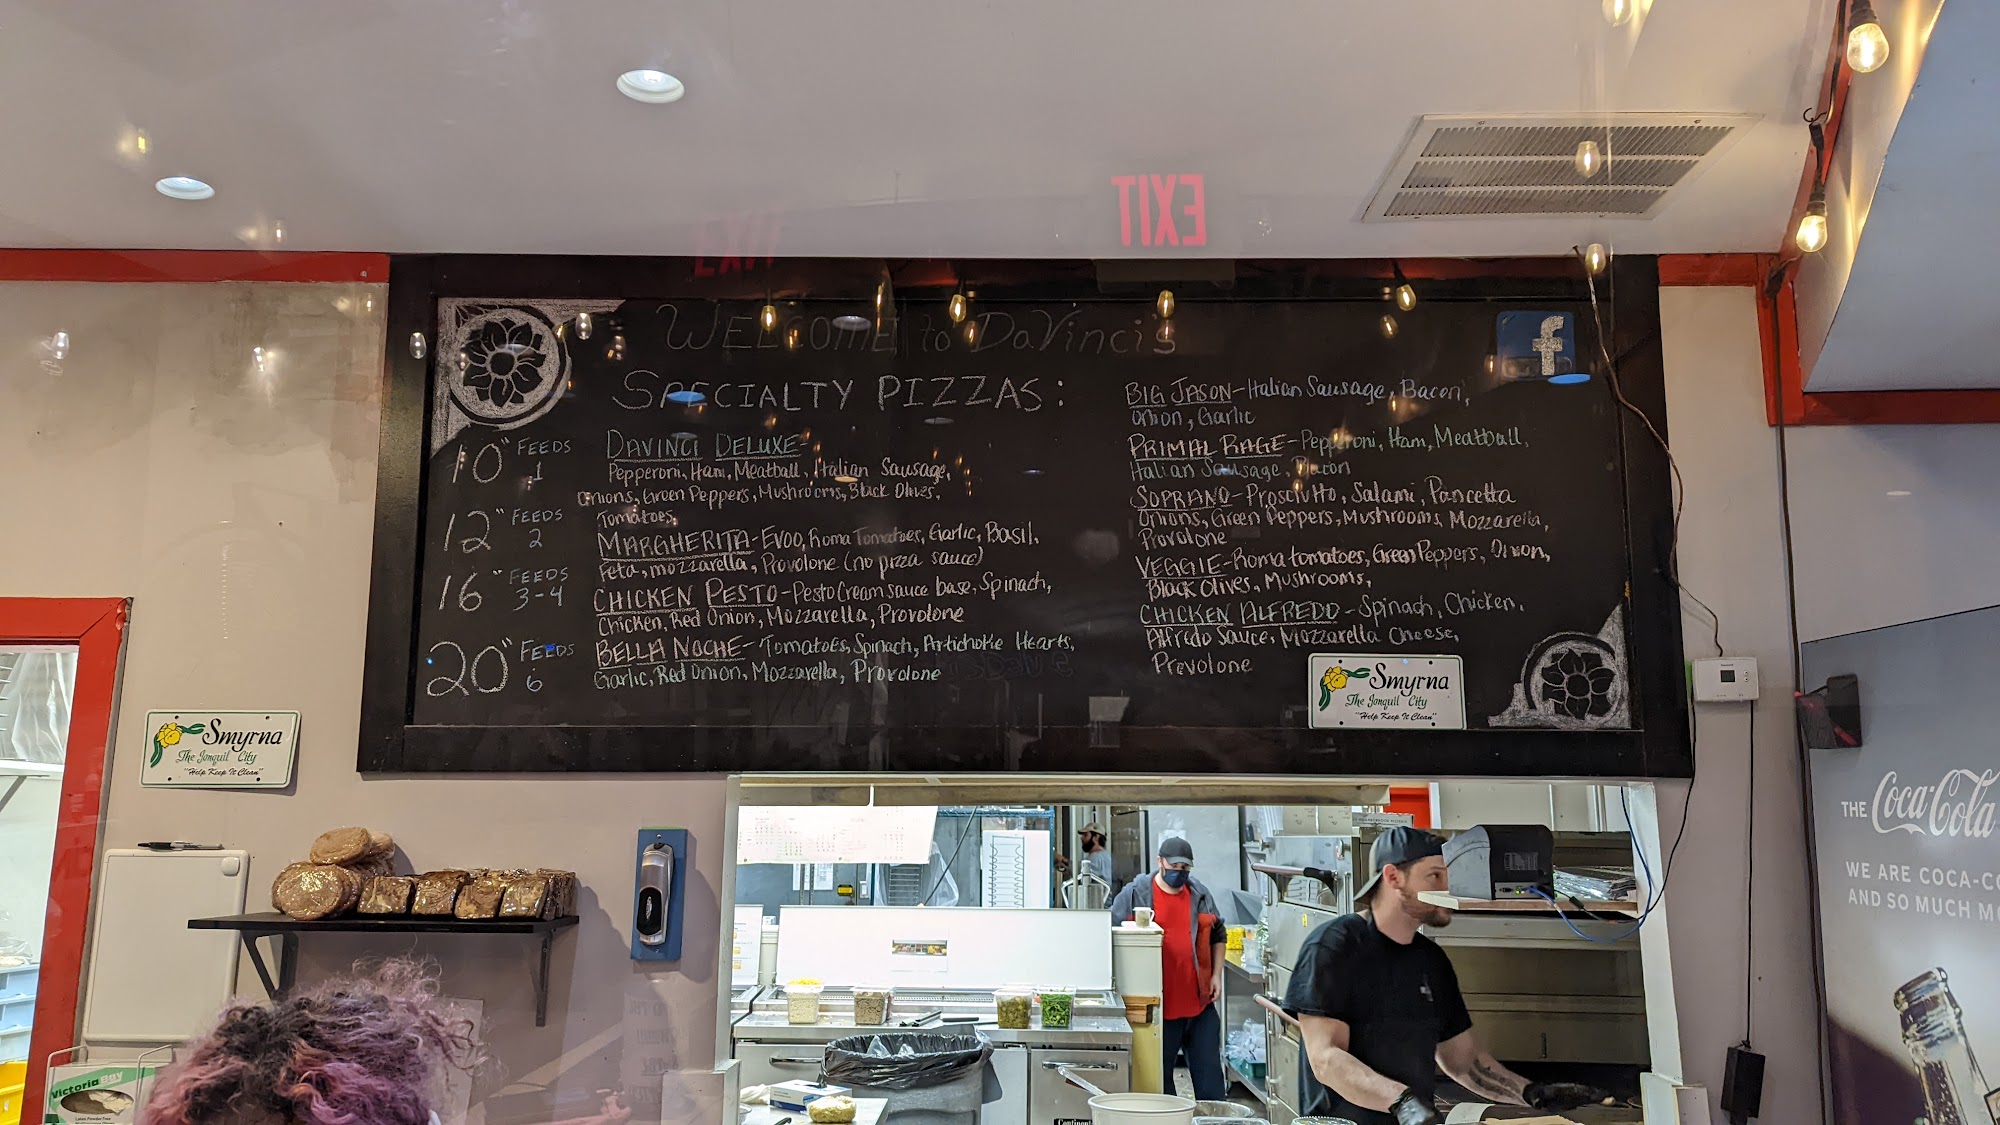 EXIT
WELCOME to DaVinci's
SPECIALTY PIZZAS:
10" FEEDS 1
12" FEEDS 2
16" FEEDS 3-4
20" FEEDS 6
DAVINCI DELUXE-
Pepperoni, Ham, Meatball, Italian Sausage,
Onions, Green Peppers, Mushrooms, Black Olives,
Tomatoes,
MARGHERITA-EVOO, Roma Tomatoes, Garlic, Basil,
Feta, mozzarella, Provolone (no pizza sauce)
CHICKEN PESTO-Pesto Cream sauce base, Spinach,
Chicken, Red Onion, Mozzarella, Provolone
BELLA NOCHE-Tomatoes, Spinach, Artichoke Hearts,
Garlic, Red Onion, Mozzarella, Provolone
BIG JASON-Italian Sausage, Bacon,
Onion, Garlic
PRIMAL RAGE-Pepperoni, Ham, Meatball,
Italian Sausage, Bacon
SOPRANO-Prosciutto, Salami, Pancetta
Onions, Green Peppers, Mushrooms, Mozzarella,
Provolone
VEGGIE-Roma tomatoes, Green Peppers, Onion,
Black Olives, Mushrooms,
CHICKEN ALFREDO-Spinach, Chicken,
Alfredo Sauce, Mozzarella Cheese,
Provolone
f
Smyrna
The Jonquil City
"Help Keep It Clean"
Smyrna
The Jonquil City
"Help Keep It Clean"
THE Coca-Cola
WE ARE COCA-CO
AND SO MUCH MO
VictoriaBay